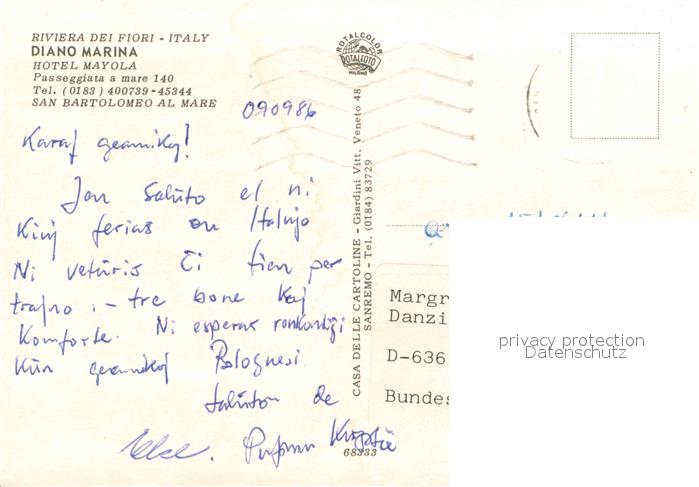 RIVIERA DEI FIORI - ITALY
DIANO MARINA
HOTEL MAYOLA
Passeggiata a mare 140
Tel. (0183) 400739-45344
SAN BARTOLOMEO AL MARE
090986
Karaj geamikoj!
Jen saluto el ni
kiuj ferias en Italujo
Ni veturis ĉi tien per
trajno :- tre bone kaj
komforte. Ni esperas renkontiĝi
kun geamikoj Bolognesi.
Saluton de
68333
ROTALCOLOR
ROTALFOTO
MILANO
CASA DELLE CARTOLINE - Giardini Vitt. Veneto 48
SANREMO - Tel. (0184) 83729
Margr
Danzi
D-636
Bundes
privacy protection
Datenschutz